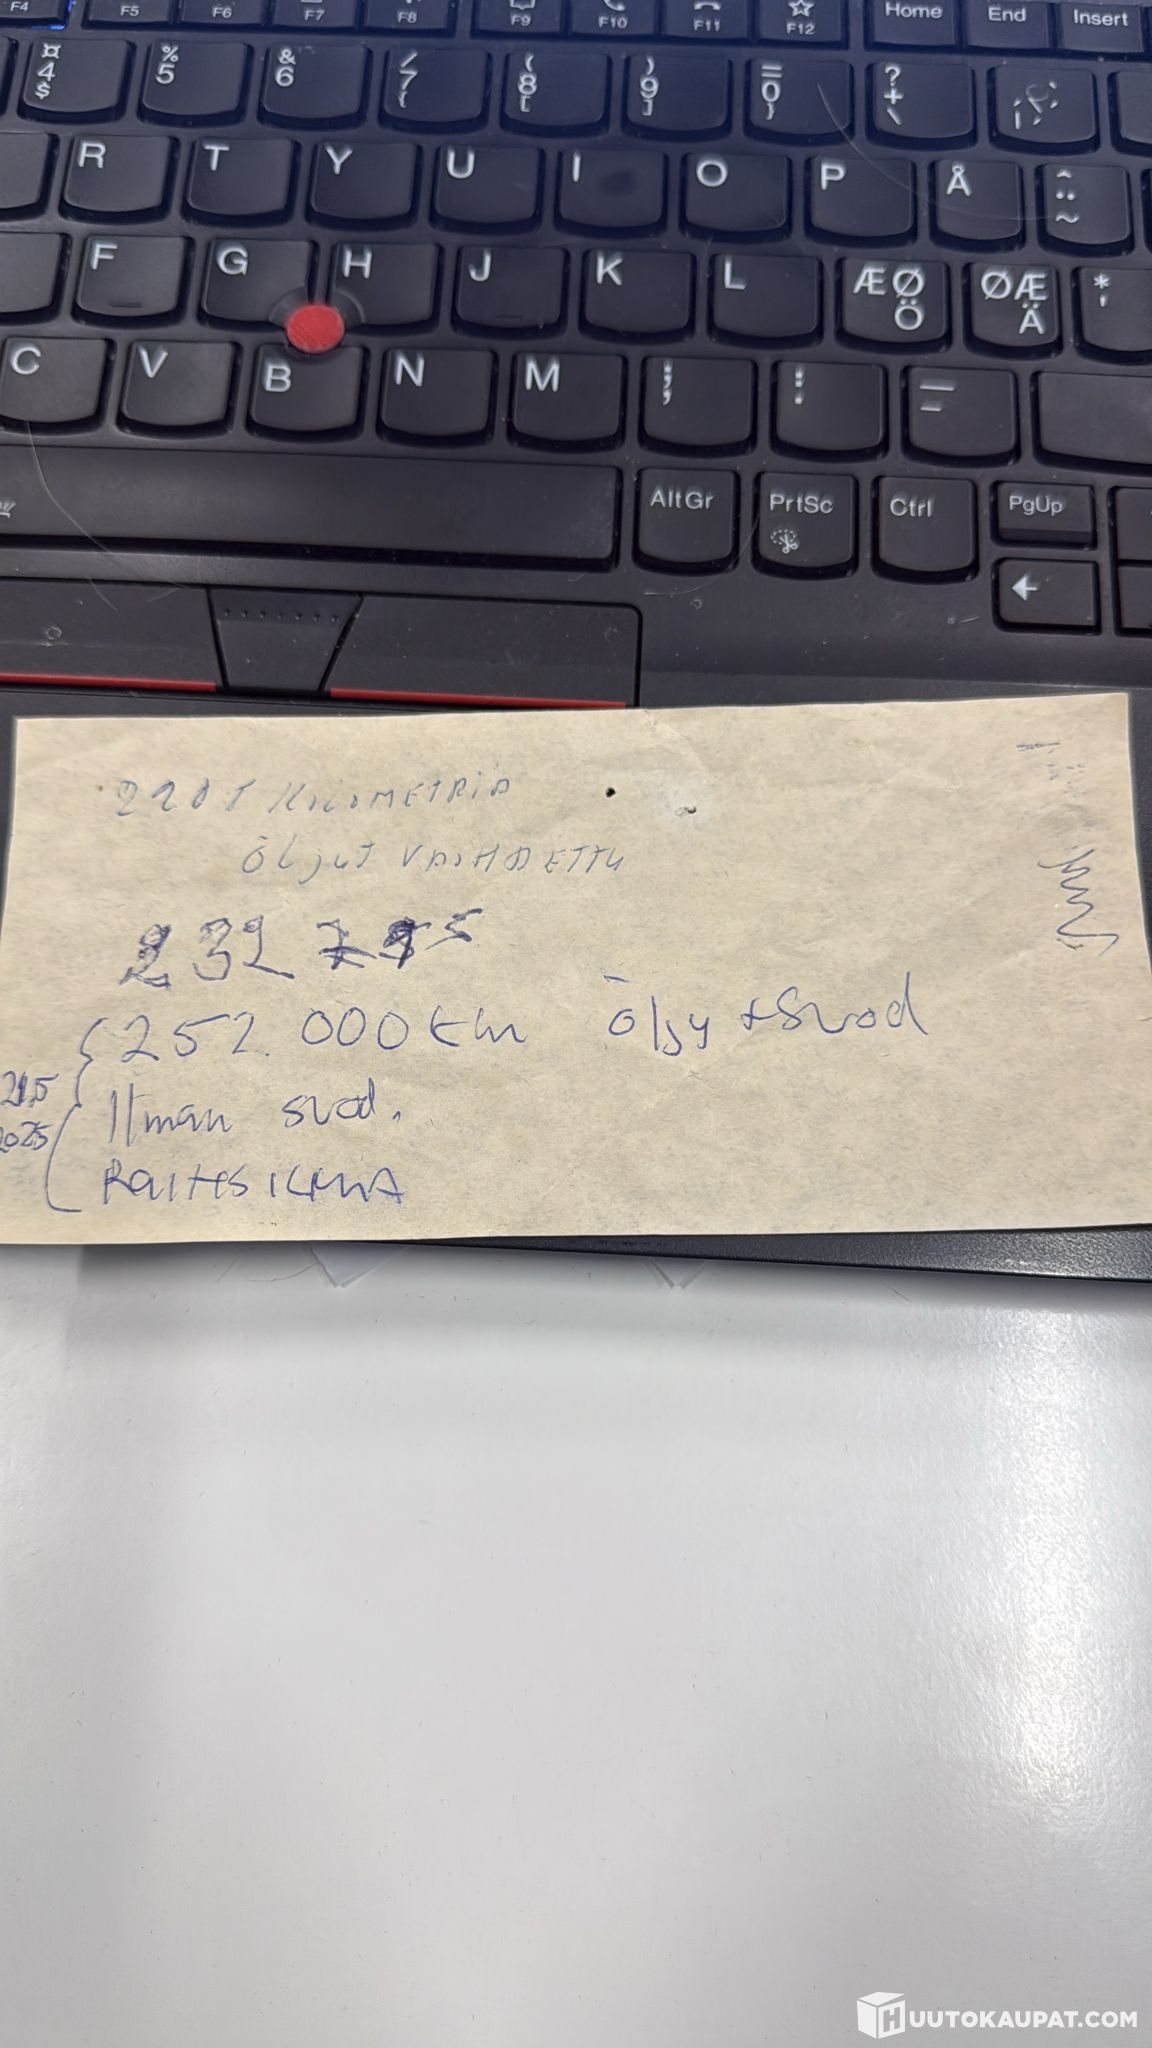 F4 F5 F6 F7 F8 F9 F10 F11 F12 Home End Insert
¤ 4 $ % 5 & 6 / 7 { ( 8 [ ) 9 ] = 0 } ? + \
R T Y U I O P Å ^ ¨ ~
F G H J K L ÆØ Ö ØÆ Ä * '
C V B N M ; , : . _ -
Alt Gr PrtSc Ctrl PgUp
←
KILOMETRIÄ
ÖLJYT VAIHDETTU
232
252.000 km Öljy + Suod
Ilman suod.
21.5
2025
Raitis ilma
HUUTOKAUPAT.COM